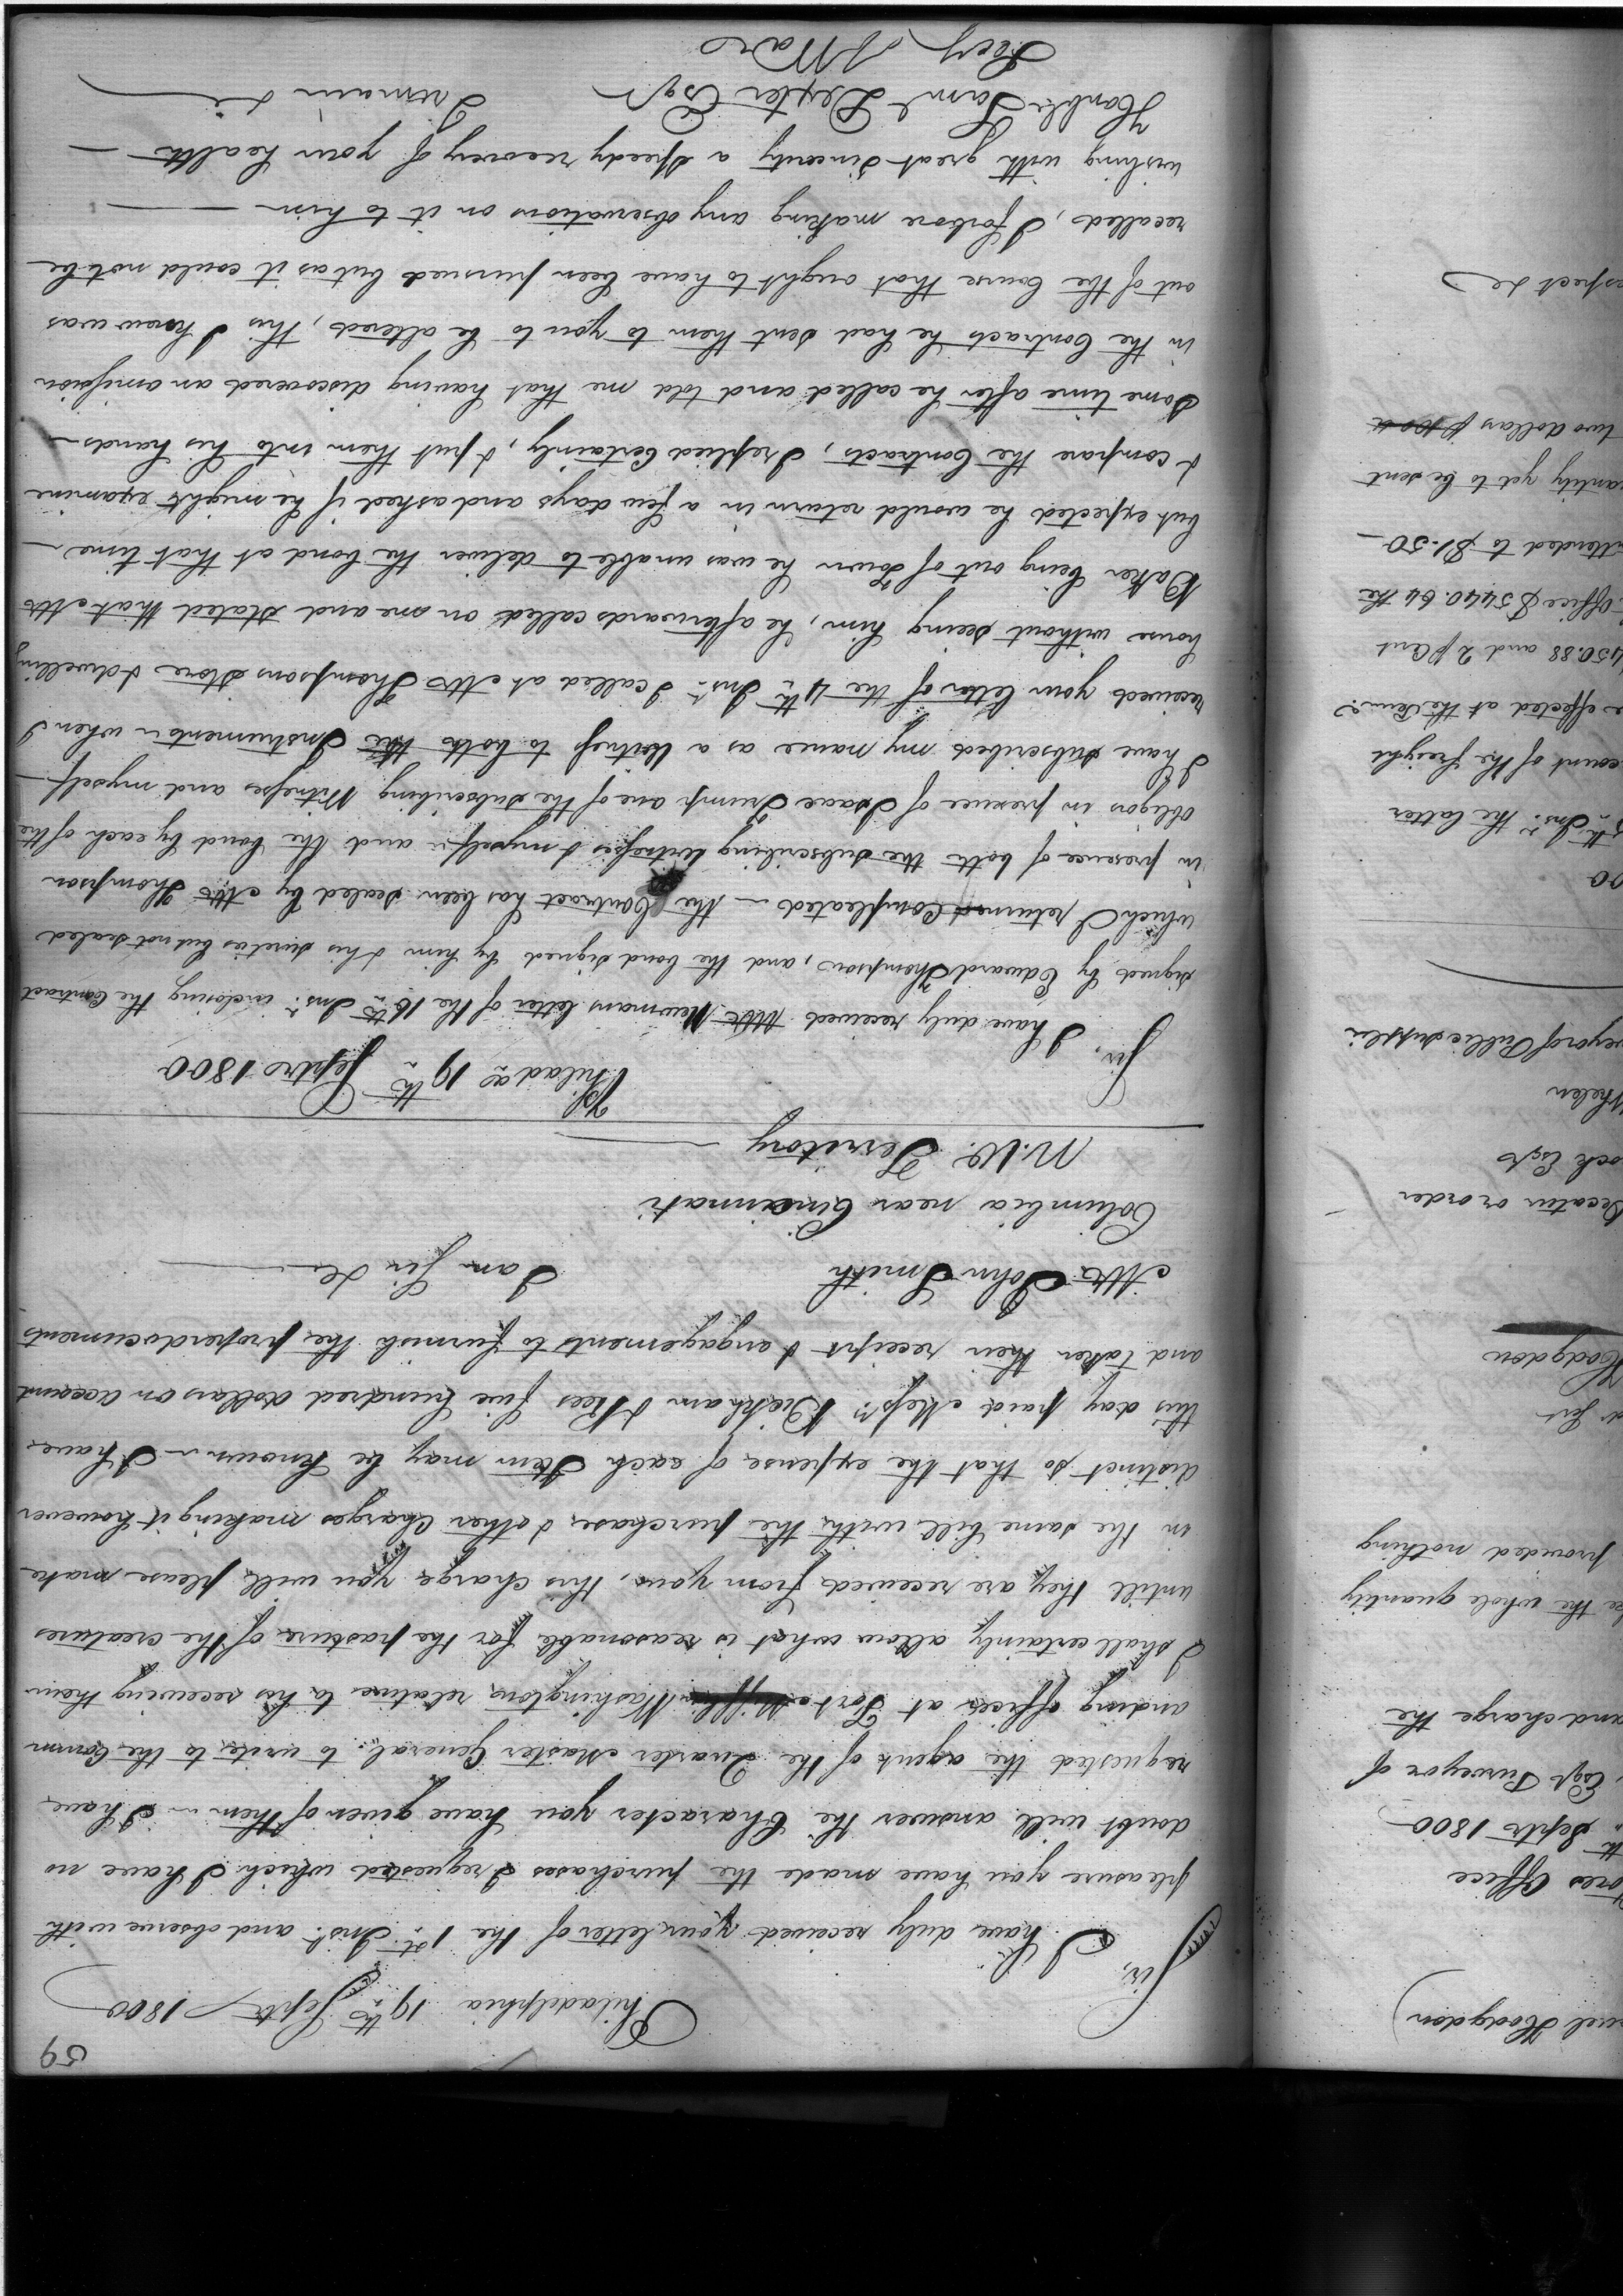 59
Philadelphia 19th Septr 1800
Sir,
I have duly received your letter of the 1st Inst. and observe with
pleasure you have made the purchases I requested which I have no
doubt will answer the Character you have given of them — I have
requested the agent of the Quarter Master General to write to the Comm
anding officer at Fort Mifflin Washington relative to his receiving them
I shall certainly allow what is reasonable for the pasture of the creatures
untill they are received from you, this charge you will please make
in the same bill with the purchase & other Charges making it however
distinct so that the expense of each Item may be known — I have
this day paid Messrs Bickham & Rees five hundred dollars on account
and taken their receipt & engagements to furnish the proper documents
I am Sir &c
Mr John Smith
Columbia near Cincinnati
N.W. Territory
Philada 19th Septr 1800
Sir, I have duly received Mr Newmans letter of the 16th Inst. inclosing the Contract
signed by Edward Thompson, and the bond signed by him & his sureties but not sealed
which I return Compleated — the Contract has been sealed by Mr Thompson
in presence of both the subscribing witnesses & myself — and the bond by each of the
obligors in presence of Isaac Trump one of the subscribing Witnesses and myself —
I have subscribed my name as a Witness to both the Instruments — when I
received your letter of the 4th Inst. I called at Mr Thompsons Store & dwelling
house without seeing him, he afterwards called on me and stated that Mr
Baker being out of Town he was unable to deliver the bond at that time —
but expected he would return in a few days and asked if he might examine
& compare the Contracts, I replied Certainly, & put them into his hands —
Some time after he called and told me that having discovered an omission
in the Contracts he had sent them to you to be altered, this, I know was
out of the Course that ought to have been pursued but as it could not be
recalled, I forbore making any observations on it to him —
wishing with great Sincerity a speedy recovery of your health —
I remain &c
Honble Saml Dexter Esqr
Secy of War
uel Hodgdon
ores Office
th Septr 1800
Esqr Purveyor of
and charge the
the whole quantity
provided nothing
Hodgdon
Decatur or order
ock Esqr
Whelen
veyor of Public Supplies
th Inst. the latter
count of the freight
effected at the same
450.88 and 2 p Cent
Office $5440.64 the
ttended to $1.50 —
antity yet to be sent
two dollars p
espect &c